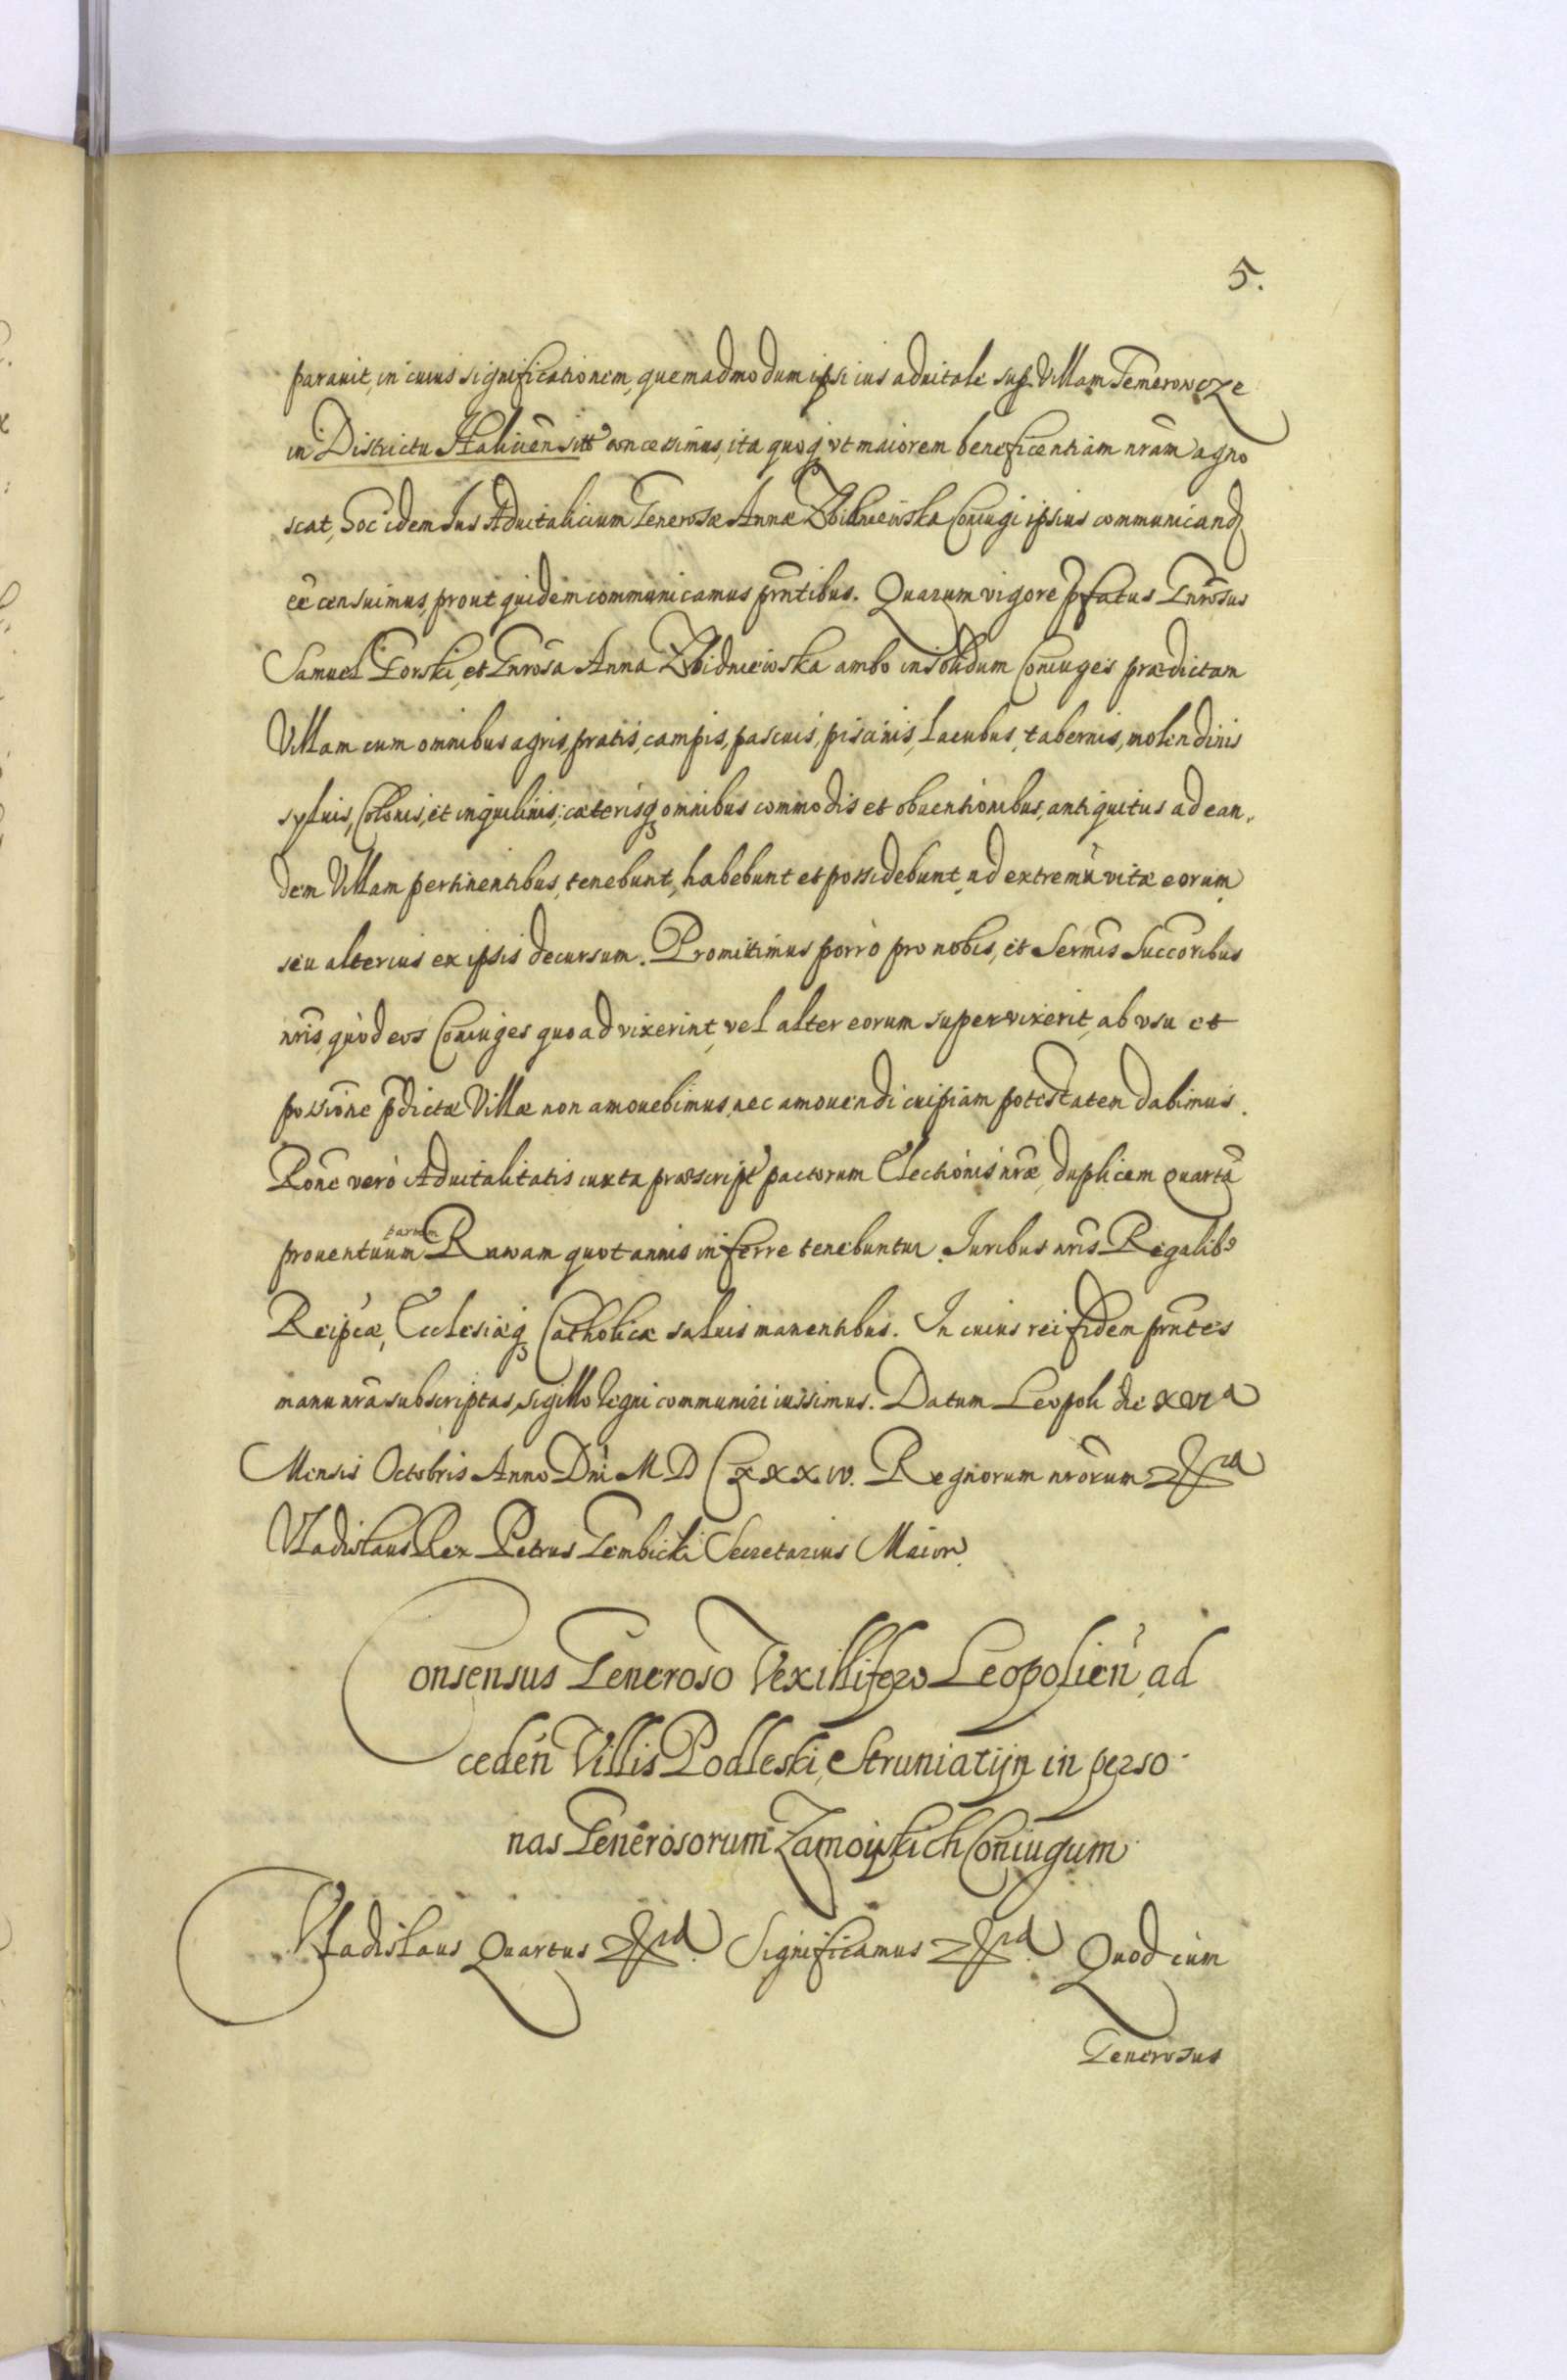 5.
parauit, in cuius significationem, quemadmodum ipsi ius aduitale sup. Villam Temerowcze
in Districtu Halicien sitt concessimus, ita quoq vt maiorem beneficentiam nram agno
scat, hoc idem Ius Aduitalicium Generosæ Annæ Zbidniewska Coniugi ipsius communicand
ee censuimus, prout quidem communicamus prntibus. Quarum vigore pfatus Gnrosus
Samuel Gorski, et Gnrosa Anna Zbidniewska ambo in solidum Coniuges prædictam
Villam cum omnibus agris, pratis, campis, pascuis, piscinis, Lacubus, tabernis, molendinis
syluis, Colonis, et inquilinis, cæterisq omnibus commodis et obuentionibus, antiquitus ad ean,
dem Villam pertinentibus, tenebunt, habebunt et possidebunt, ad extremu vitæ eorum,
seu alterius ex ipsis decursum. Promittimus porrò pro nobis, et Sermis Succoribus
nris, quòd eos Coniuges quoad vixerint, vel alter eorum superuixerit, ab vsu et
possione pdictæ Villæ non amouebimus, nec amouendi cuipiam potestatem dabimus.
Rone verò Aduitalitatis iuxta præscript pactorum Electionis nræ, duplicem quartã
prouentuum partem Rawam quotannis inferre tenebuntur. Iuribus nris Regalib9
Reipcæ, Ecclesiæq Catholicæ saluis manentibus. In cuius rei fidem prntes
manu nra subscriptas, sigillo Regni communiri iussimus. Datum Leopoli die XVIa
Mensis Octobris Anno Dni M D C XXX IV. Regnorum nrorum &ra
Vladislaus Rex Petrus Gembicki Secretarius Maior.
Consensus Generoso Vexillifero Leopolien ad
ceden Villis Podleski, Struniatyn in perso
nas Generosorum Zamoyskich Coniugum
Vladislaus Quartus &ra Significamus &ra Quod cum
Generosus